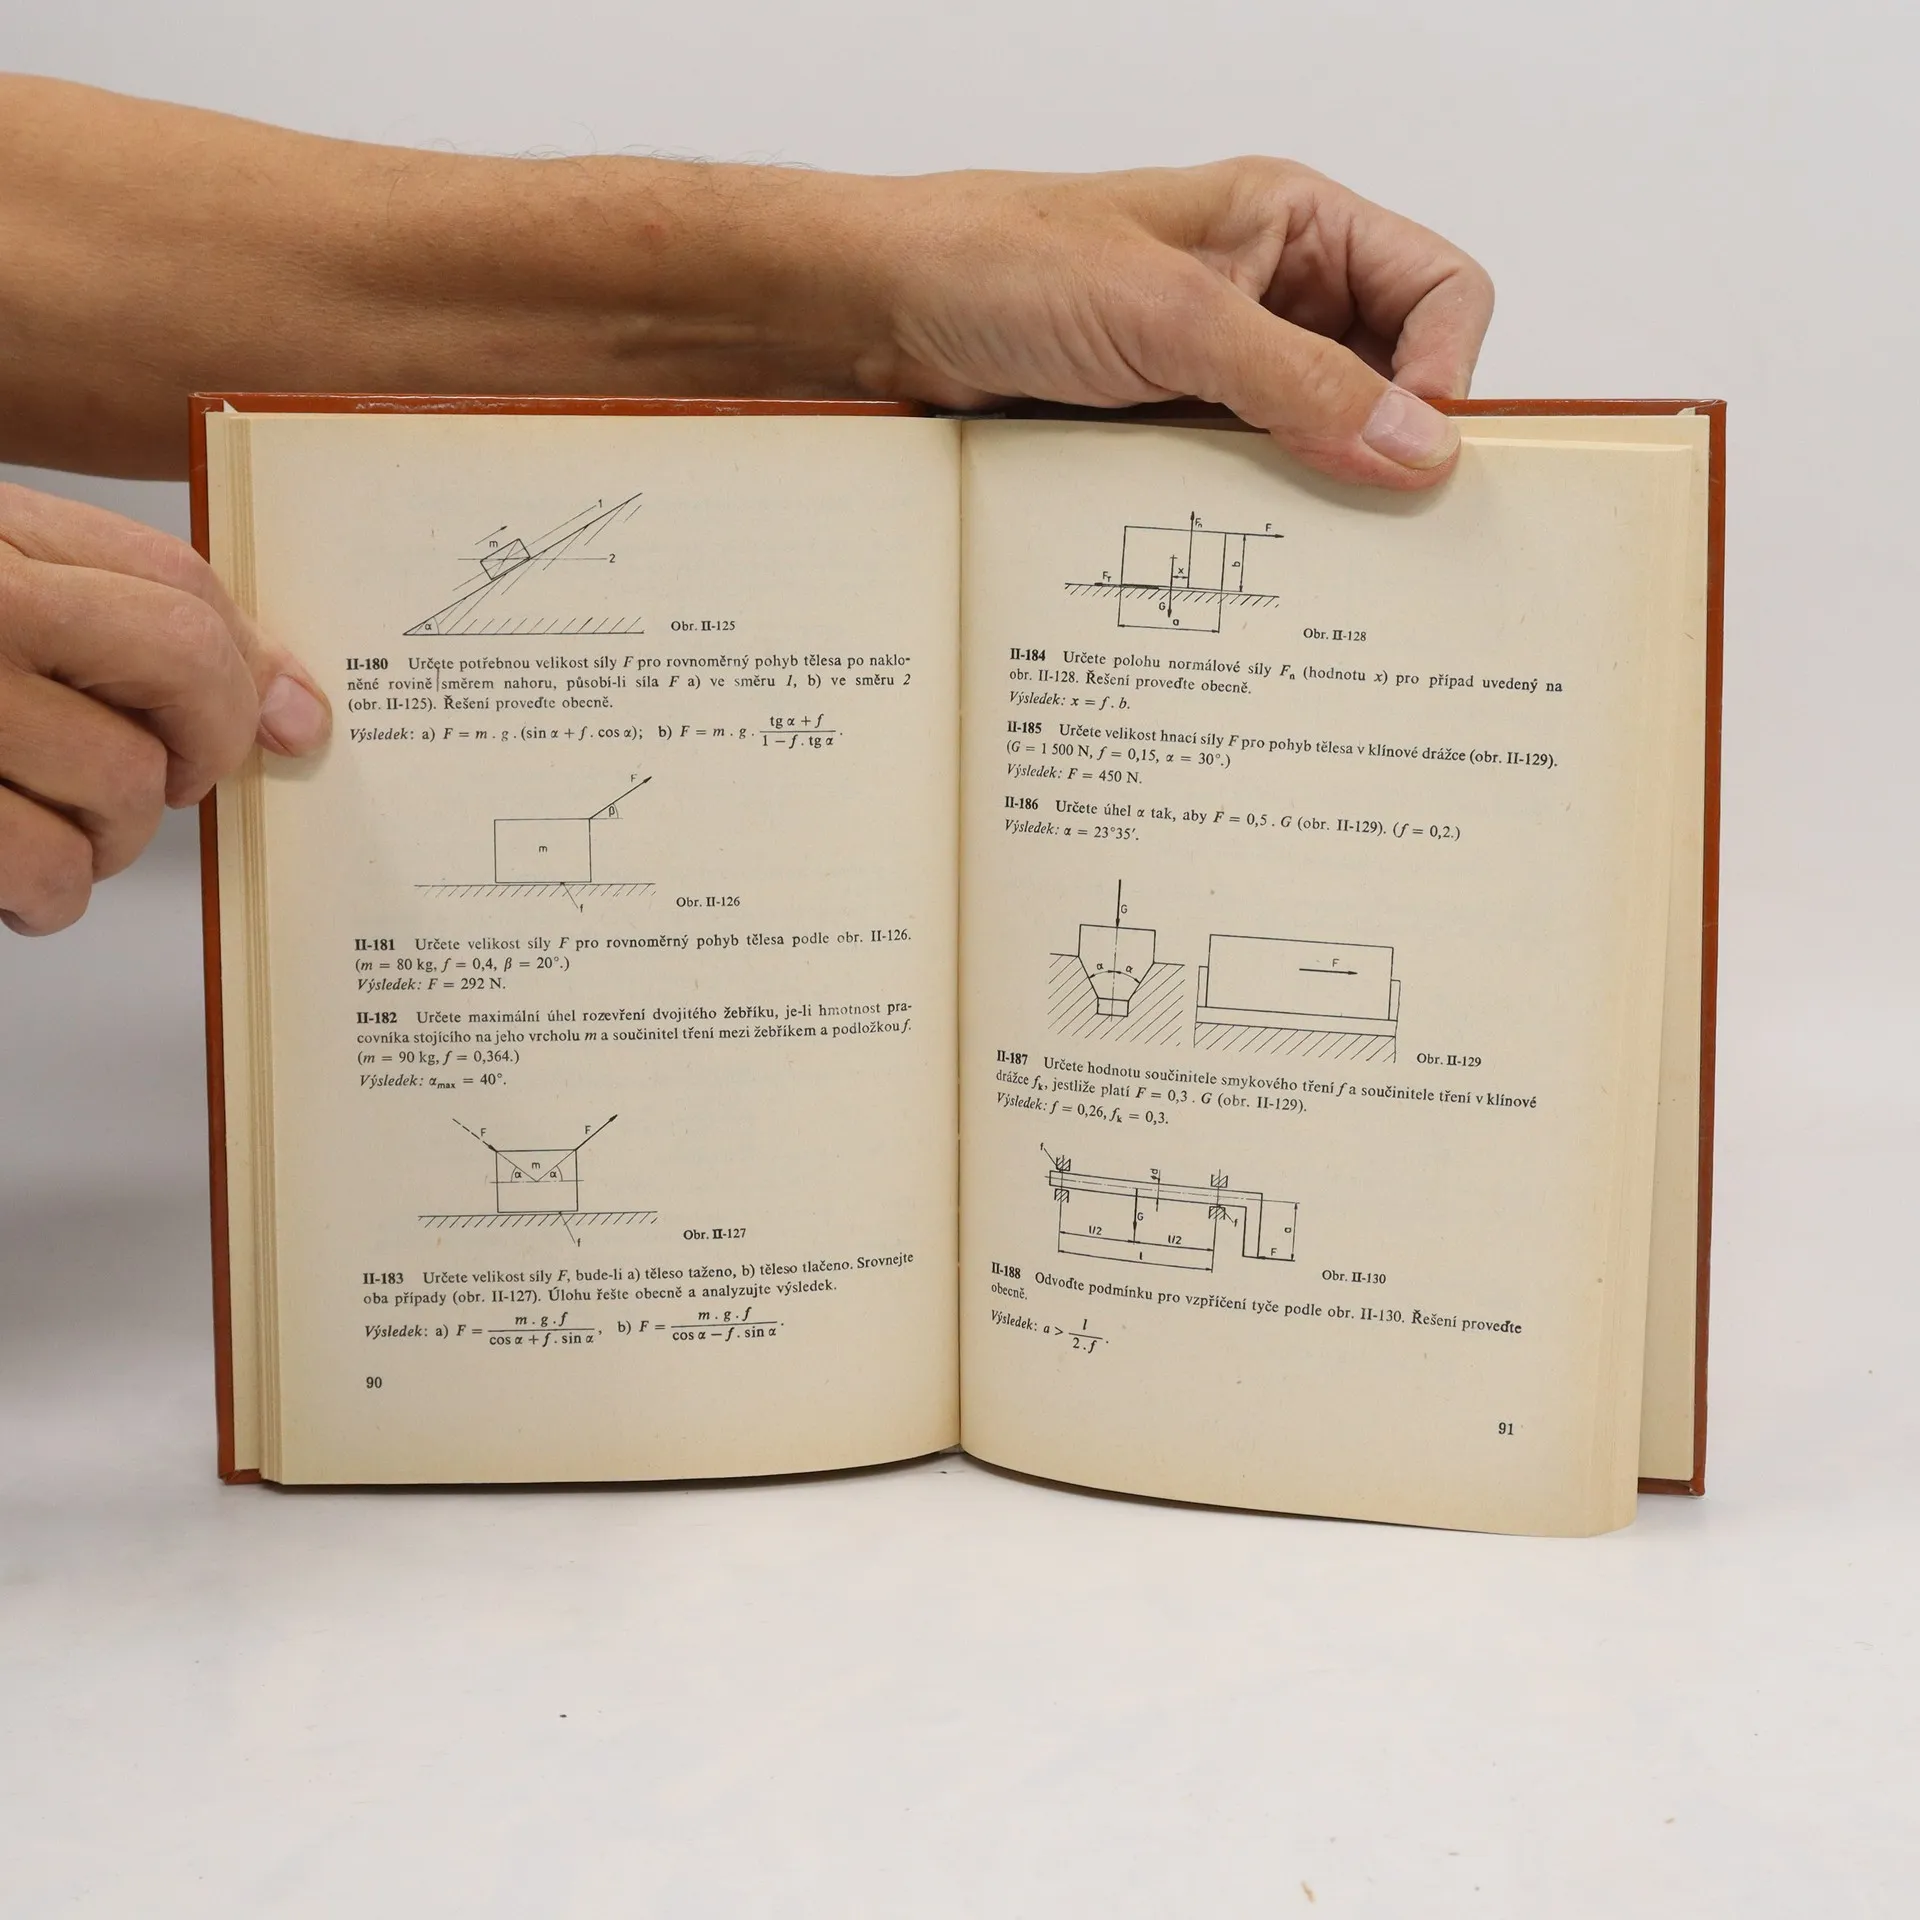 1
m
2
α
Obr. II-125
II-180 Určete potřebnou velikost síly F pro rovnoměrný pohyb tělesa po naklo-
něné rovině směrem nahoru, působí-li síla F a) ve směru 1, b) ve směru 2
(obr. II-125). Řešení proveďte obecně.
Výsledek: a) F = m . g . (sin α + f . cos α); b) F = m . g . (tg α + f) / (1 − f . tg α) .
F
β
m
f
Obr. II-126
II-181 Určete velikost síly F pro rovnoměrný pohyb tělesa podle obr. II-126.
(m = 80 kg, f = 0,4, β = 20°.)
Výsledek: F = 292 N.
II-182 Určete maximální úhel rozevření dvojitého žebříku, je-li hmotnost pra-
covníka stojícího na jeho vrcholu m a součinitel tření mezi žebříkem a podložkou f.
(m = 90 kg, f = 0,364.)
Výsledek: αmax = 40°.
F F
m
α α
f
Obr. II-127
II-183 Určete velikost síly F, bude-li a) těleso taženo, b) těleso tlačeno. Srovnejte
oba případy (obr. II-127). Úlohu řešte obecně a analyzujte výsledek.
Výsledek: a) F = m . g . f / (cos α + f . sin α) , b) F = m . g . f / (cos α − f . sin α) .
90
Fn F
b
x
FT
G
a
Obr. II-128
II-184 Určete polohu normálové síly Fn (hodnotu x) pro případ uvedený na
obr. II-128. Řešení proveďte obecně.
Výsledek: x = f . b.
II-185 Určete velikost hnací síly F pro pohyb tělesa v klínové drážce (obr. II-129).
(G = 1 500 N, f = 0,15, α = 30°.)
Výsledek: F = 450 N.
II-186 Určete úhel α tak, aby F = 0,5 . G (obr. II-129). (f = 0,2.)
Výsledek: α = 23°35′.
G
α α
F
Obr. II-129
II-187 Určete hodnotu součinitele smykového tření f a součinitele tření v klínové
drážce fk, jestliže platí F = 0,3 . G (obr. II-129).
Výsledek: f = 0,26, fk = 0,3.
f
d
G
f
l/2 l/2
a
l
F
Obr. II-130
II-188 Odvoďte podmínku pro vzpříčení tyče podle obr. II-130. Řešení proveďte
obecně.
Výsledek: a > l / (2 . f) .
91